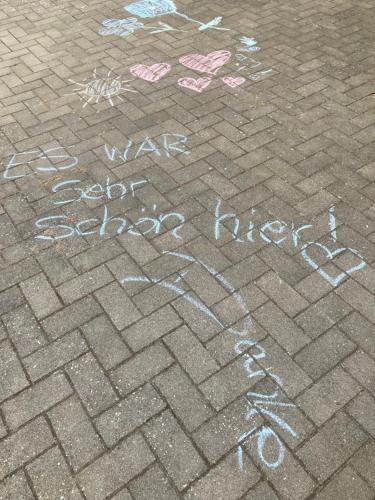 ES WAR
Sehr
schön hier!
Danke!
B